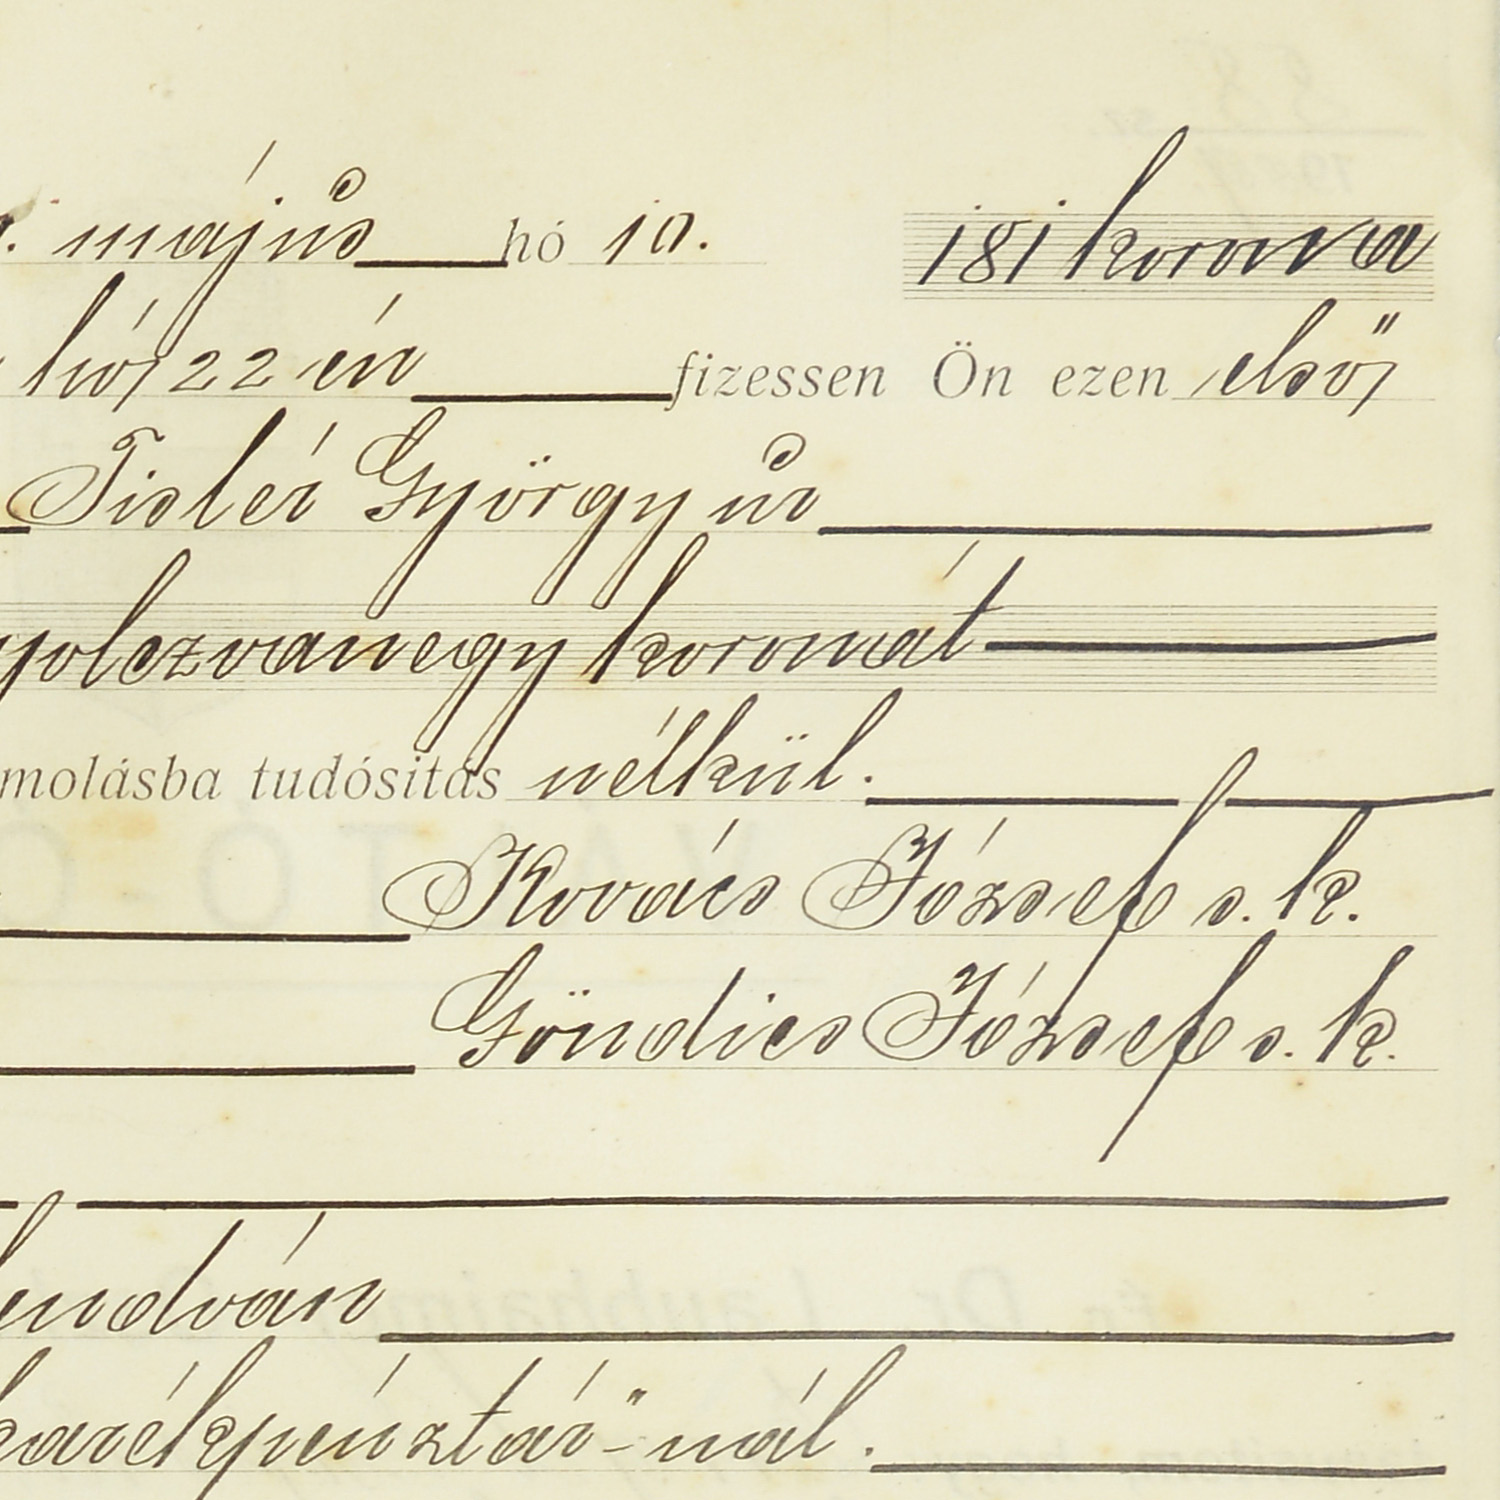 május hó 10. 181 korona
hó 22 én fizessen Ön ezen első
Tislér György úr
yolczvanegy koronát
molásba tudósitás nélkül.
Kovács József s. k.
Göndics József s. k.
lendván
karékpénztár"-nál.